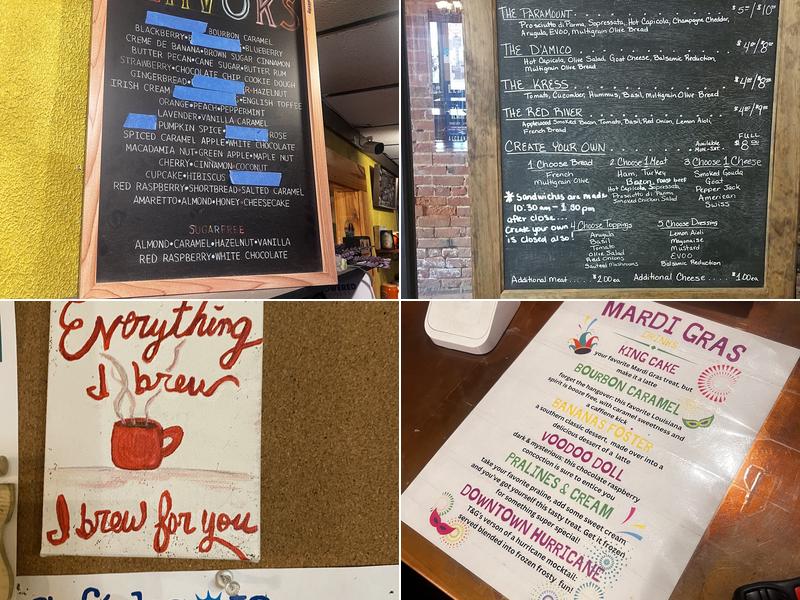 FLAVORS
BOURBON CARAMEL
BLACKBERRY • BLUEBERRY
CREME DE BANANA • BROWN SUGAR CINNAMON
BUTTER PECAN • CANE SUGAR • BUTTER RUM
STRAWBERRY • CHOCOLATE CHIP COOKIE DOUGH
GINGERBREAD • R • HAZELNUT
IRISH CREAM • ENGLISH TOFFEE
ORANGE • PEACH • PEPPERMINT
LAVENDER • VANILLA • CARAMEL
PUMPKIN SPICE • ROSE
SPICED CARAMEL APPLE • WHITE CHOCOLATE
MACADAMIA NUT • GREEN APPLE • MAPLE NUT
CHERRY • CINNAMON • COCONUT
CUPCAKE • HIBISCUS
RED RASPBERRY • SHORTBREAD • SALTED CARAMEL
AMARETTO • ALMOND • HONEY • CHEESECAKE
SUGAR FREE
ALMOND • CARAMEL • HAZELNUT • VANILLA
RED RASPBERRY • WHITE CHOCOLATE
THE PARAMOUNT $5/$10
Prosciutto di Parma, Sopressata, Hot Capicola, Champagne Cheddar,
Arugula, EVOO, Multigrain Olive Bread
THE D'AMICO $4/8
Hot Capicola, Olive Salad, Goat Cheese, Balsamic Reduction,
Multigrain Olive Bread
THE KRESS $4/$8
Tomato, Cucumber, Hummus, Basil, Multigrain Olive Bread
THE RED RIVER $4/$9
Applewood Smoked Bacon, Tomato, Basil, Red Onion, Lemon Aioli
French Bread
CREATE YOUR OWN Available FULL $8
1 Choose Bread
French
Multigrain Olive
2 Choose 1 Meat
Ham, Turkey
Bacon, roast beef
Hot Capicola, Sopressata,
Prosciutto di Parma
Smoked Chicken Salad
3 Choose 1 Cheese
Smoked Gouda
Goat
Pepper Jack
American
Swiss
* Sandwiches are made
10:30 am - 1:30 pm
after close...
Create your own
is closed also!
4 Choose Toppings
Arugula
Basil
Tomato
Olive Salad
Red Onions
Sauteed Mushrooms
5 Choose Dressing
Lemon Aioli
Mayonaise
Mustard
EVOO
Balsamic Reduction
Additional Meat..... $2.00 ea Additional Cheese.... $1.00 ea
Everything
I brew
I brew for you
MARDI GRAS
DRINKS
KING CAKE
your favorite Mardi Gras treat, but
make it a latte
BOURBON CARAMEL
forget the hangover: this favorite Louisiana
spirit is booze free, with caramel sweetness and
a caffeine kick
BANANAS FOSTER
a southern classic dessert, made over into a
delicious dessert of a latte
VOODOO DOLL
dark & mysterious: this chocolate raspberry
concoction is sure to entice you
PRALINES & CREAM
take your favorite praline, add some sweet cream
and you've got yourself this tasty treat. Get it frozen
for something super special!
DOWNTOWN HURRICANE
T&G's verson of a hurricane mocktail:
served blended into frozen frosty fun!